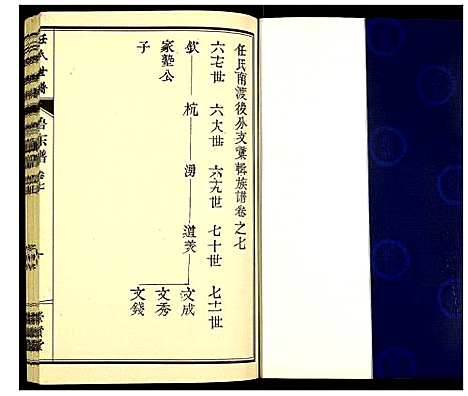 任氏南渡後分支彙輯族譜卷之七
六七世 六大世 六九世 七十世 七十一世
欽 杭 湧 道美 文成
家塾公 文秀
子 文錢
任氏世譜
卷七